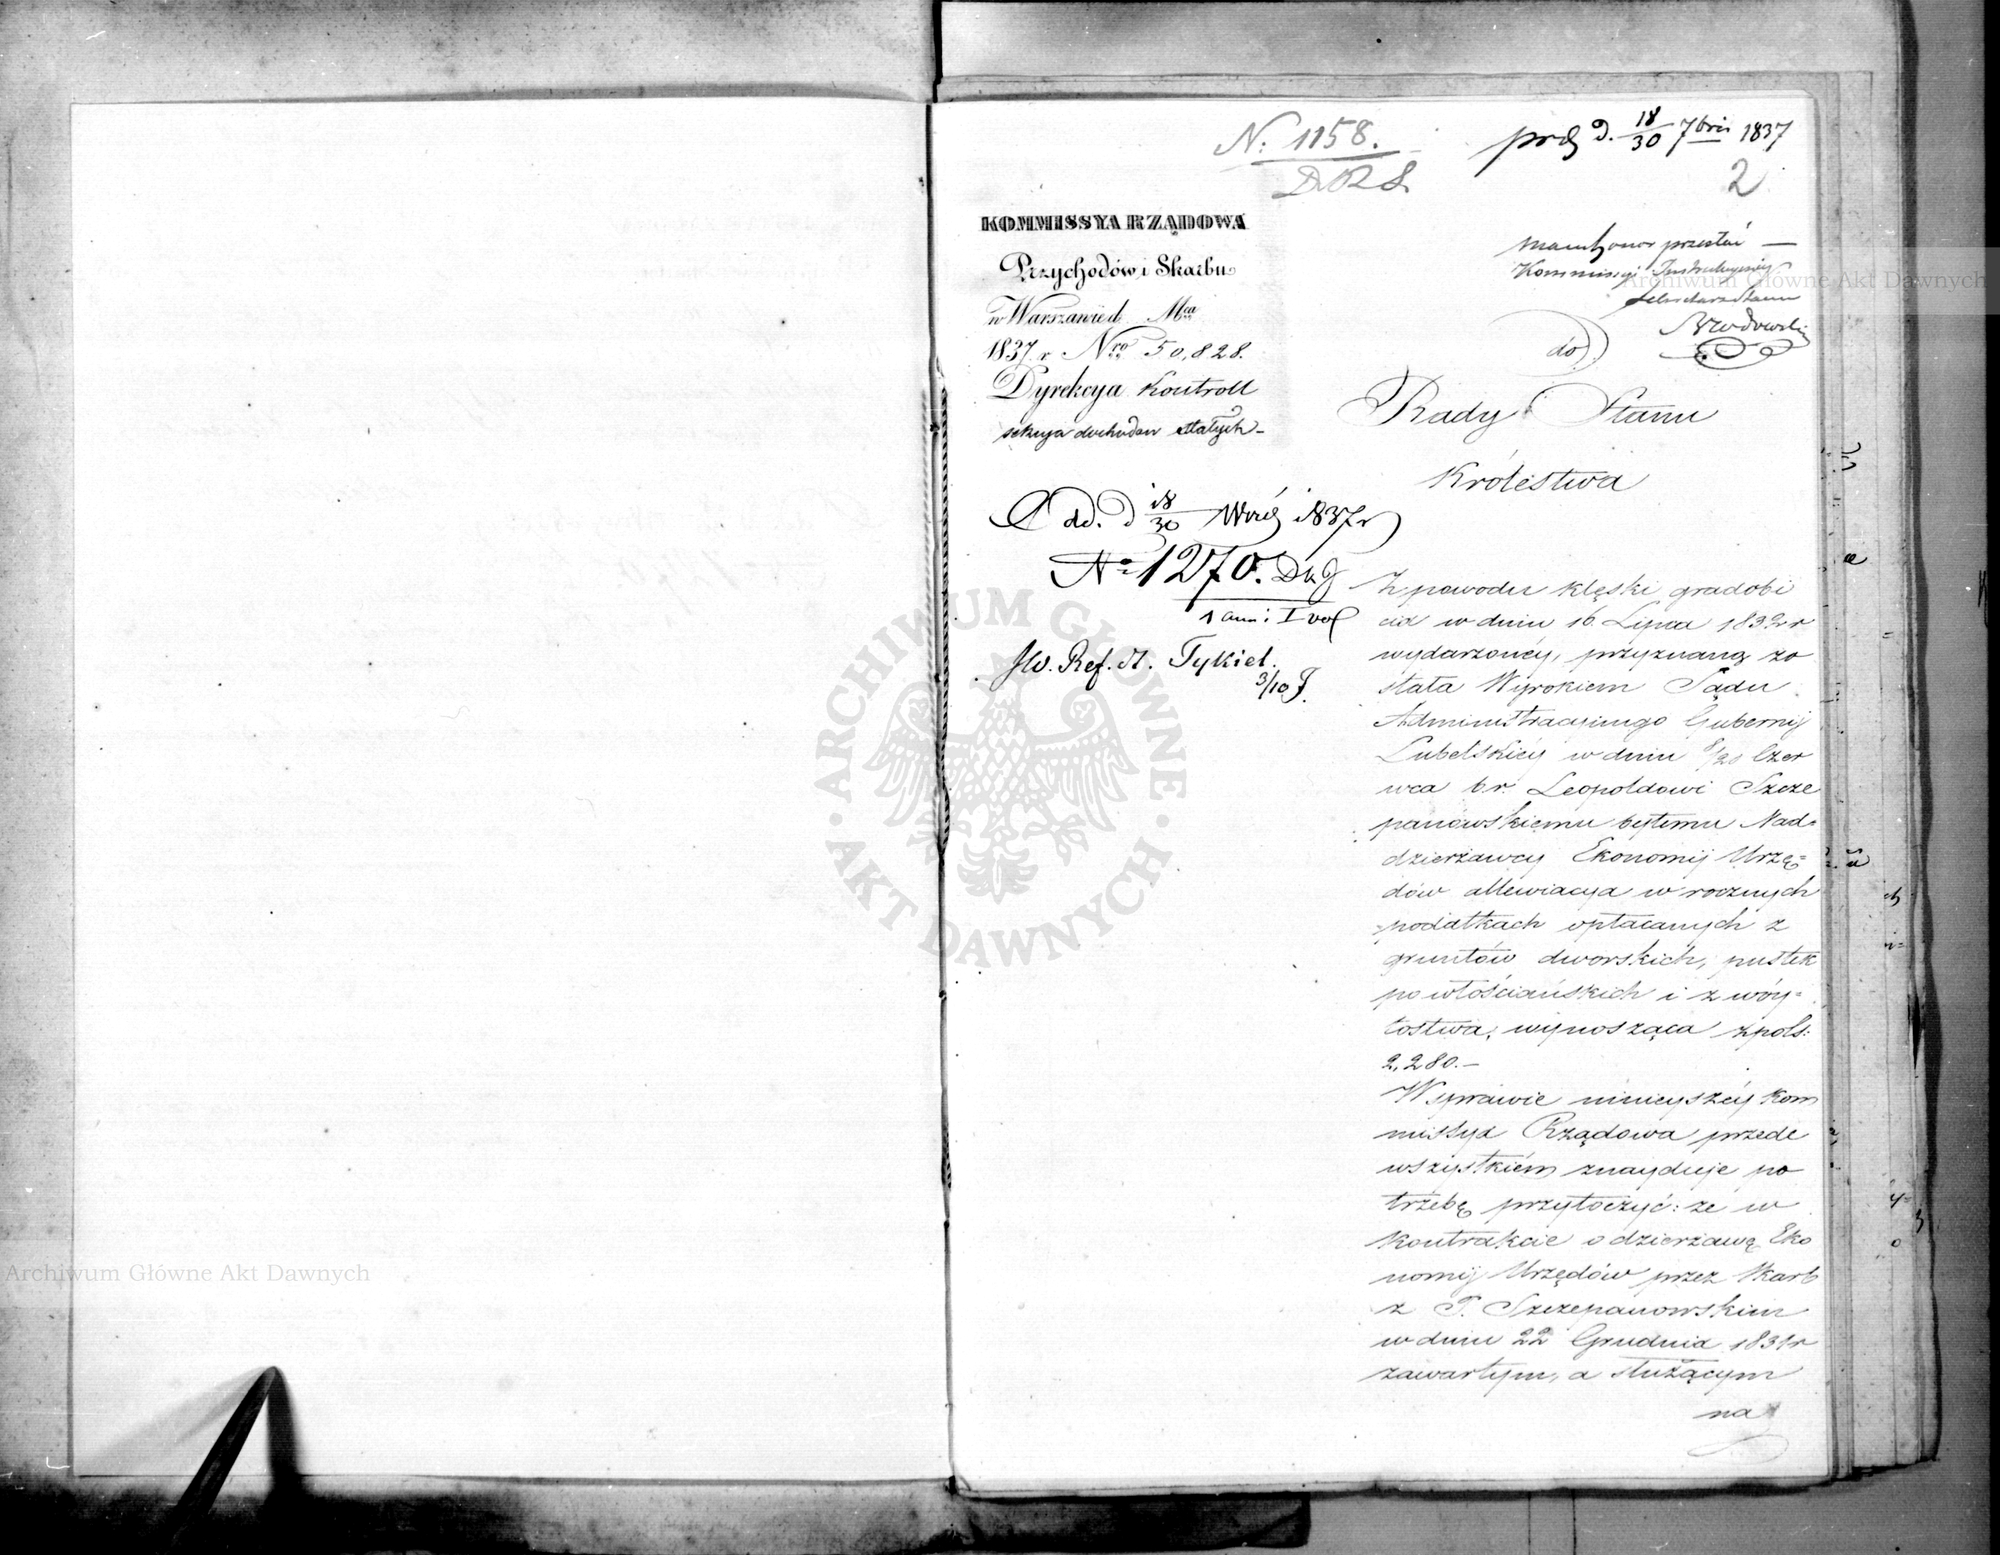 N. 1158.
D.R.S.
prz d. 18/30 7bris 1837
2
mam honor przesłać
Kommissyi Instrukcyjnéy
Sekretarz Stanu
KOMMISSYA RZĄDOWA
Przychodów i Skarbu
w Warszawie d. Mca
1837 r Nro 50,828.
Dyrekcya Kontroll
sekcya dochodów stałych
do
Rady Stanu
Królestwa
Odd. d 18/30 Wrześ 1837 r
No 1270.
1 ann: I vol
JW. Ref. St. Tykiel.
3/10
Z powodu klęski gradobi
cia w dniu 16 Lipca 1832 r
wydarzonéy, przyznaną zo
stała Wyrokiem Sądu
Administracyjnego Gubernij
Lubelskiéy w dniu 8/20 Czer
wca b.r. Leopoldowi Szcze
panowskiemu byłemu Nad=
dzierżawcy Ekonomij Urzę=
dów allewiacya w rocznych
podatkach opłacanych z
gruntów dworskich, pustek
po włościańskich i z wóy=
tostwa, wynosząca zpols:
2,280.—
W sprawie ninieyszéy Kom
missya Rządowa przede
wszystkiém znayduje po
trzebę przytoczyć: że w
kontrakcie o dzierżawę Eko
nomij Urzędów przez Skarb
z P. Szczepanowskim
w dniu 22 Grudnia 1831 r
zawartym, a służącym
na
ARCHIWUM GŁÓWNE AKT DAWNYCH
Archiwum Główne Akt Dawnych
Archiwum Główne Akt Dawnych